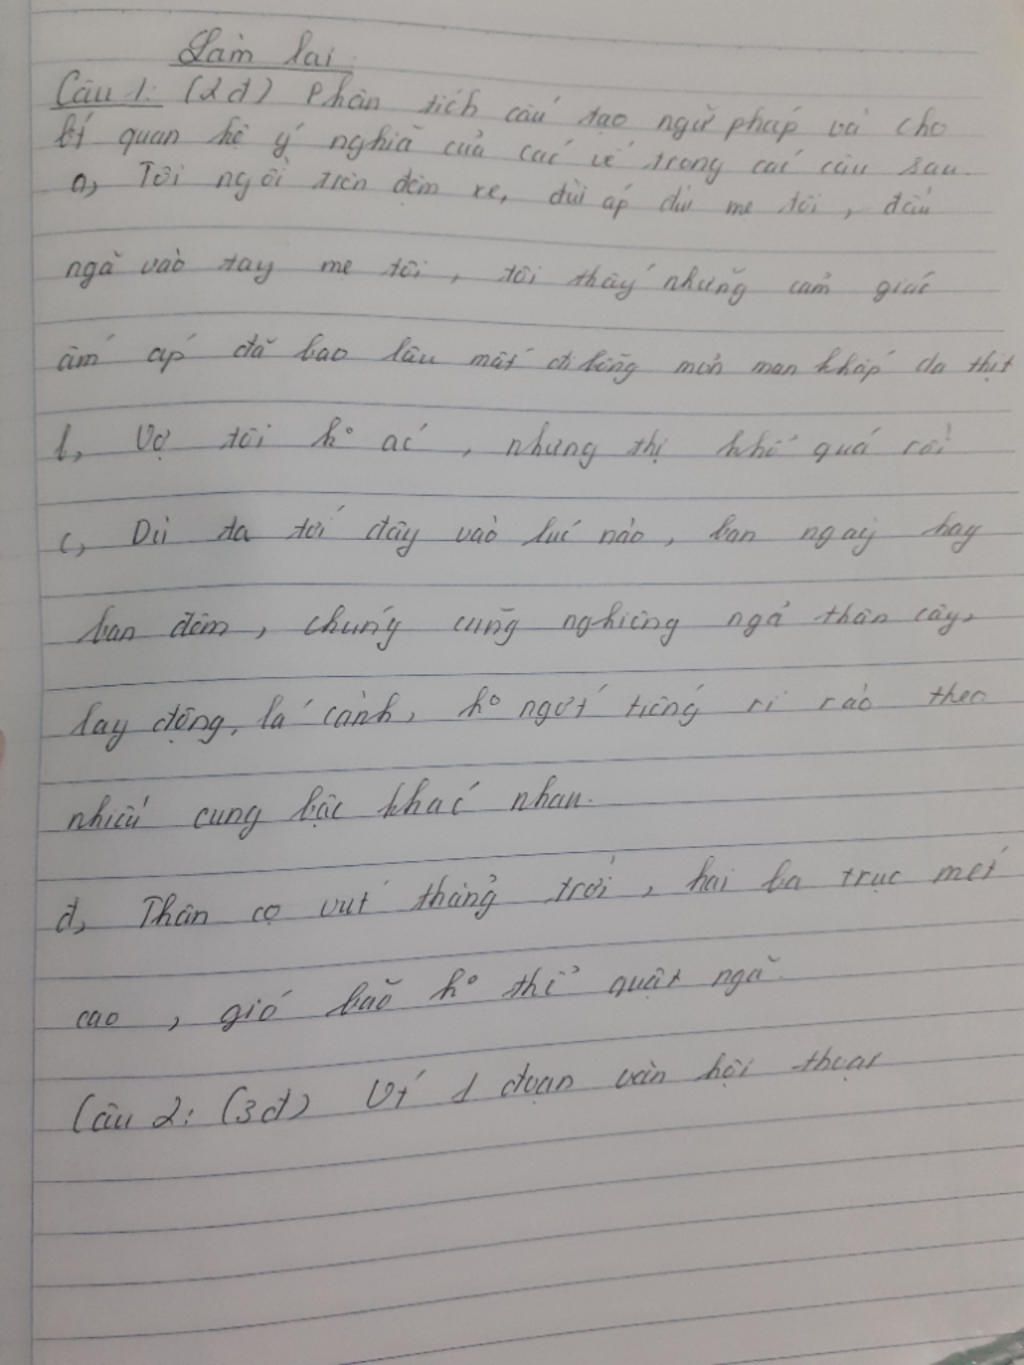 Làm lại
Câu 1: (2đ) Phân tích cấu tạo ngữ pháp và cho
bt quan hệ ý nghĩa của các vế trong các câu sau.
a, Tôi ngồi trên đệm xe, đùi áp đùi mẹ tôi, đầu
ngả vào tay mẹ tôi, tôi thấy những cảm giác
ấm áp đã bao lâu mất đi bỗng mơn man khắp da thịt
b, Vợ tôi ko ác, nhưng thị khổ quá rồi
c, Dù ta tới đây vào lúc nào, ban ngày hay
ban đêm, chúng cũng nghiêng ngả thân cây,
lay động, lá cành, ko ngớt tiếng rì rào theo
nhiều cung bậc khác nhau.
d, Thân cọ vút thẳng trời, hai ba trục mét
cao, gió bão ko thể quật ngã.
Câu 2: (3đ) Vt 1 đoạn văn hội thoại